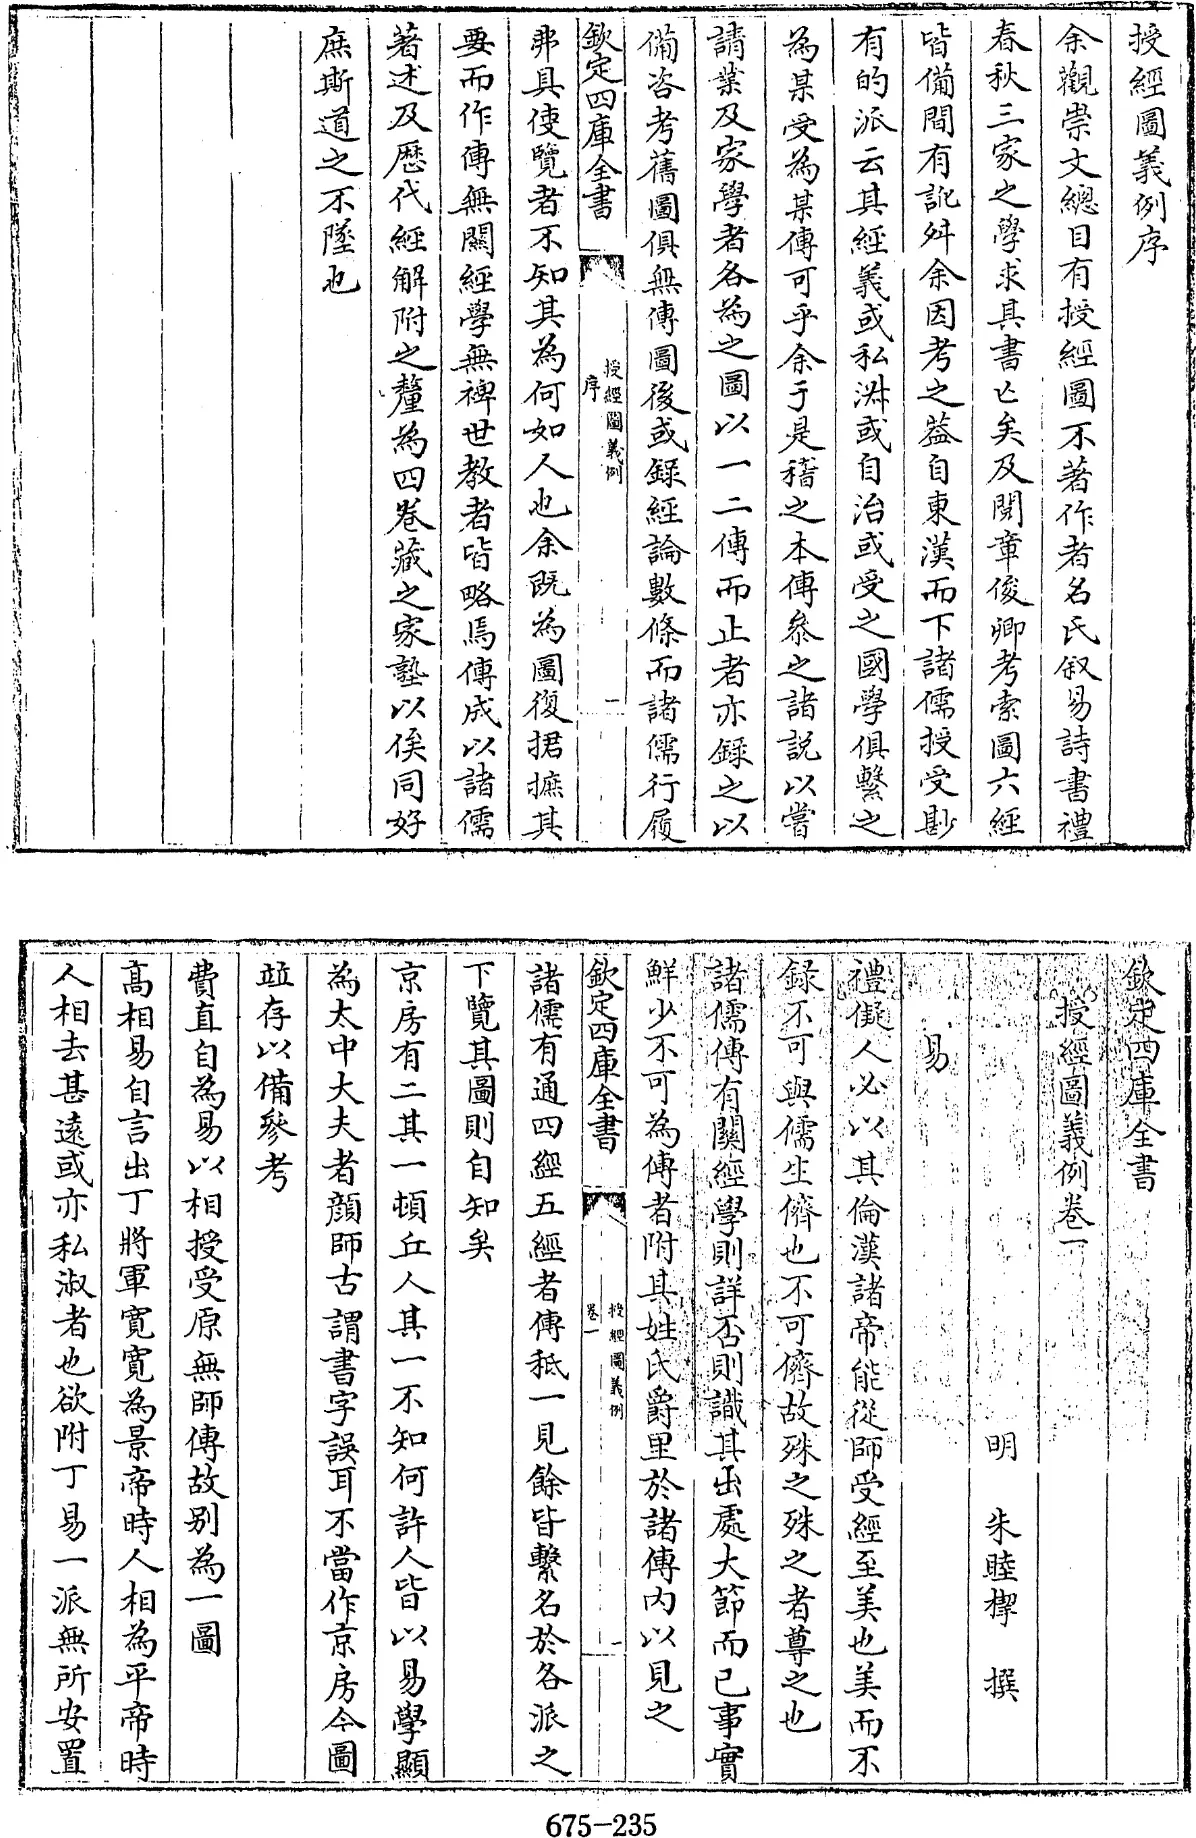 授經圖義例序
余觀崇文總目有授經圖不著作者名氏叙易詩書禮
春秋三家之學求其書亡矣及閱章俊卿考索圖六經
皆備間有訛舛余因考之葢自東漢而下諸儒授受尠
有的派云其經義或私淑或自治或受之國學俱繫之
為某受為某傳可乎余于是稽之本傳叅之諸說以嘗
請業及家學者各為之圖以一二傳而止者亦録之以
備咨考舊圖俱無傳圖後或録經論數條而諸儒行履
欽定四庫全書
授經圖義例
序
一
弗具使覽者不知其為何如人也余既為圖復捃摭其
要而作傳無關經學無裨世教者皆略焉傳成以諸儒
著述及歷代經解附之釐為四卷藏之家塾以俟同好
庶斯道之不墜也
欽定四庫全書
授經圖義例卷一
明 朱睦㮮 撰
易
禮儗人必以其倫漢諸帝能從師受經至美也美而不
録不可與儒生儕也不可儕故殊之殊之者尊之也
諸儒傳有關經學則詳否則識其出處大節而已事實
鮮少不可為傳者附其姓氏爵里於諸傳内以見之
欽定四庫全書
授經圖義例
卷一
一
諸儒有通四經五經者傳秪一見餘皆繫名於各派之
下覽其圖則自知矣
京房有二其一頓丘人其一不知何許人皆以易學顯
為太中大夫者顔師古謂書字誤耳不當作京房今圖
並存以備參考
費直自為易以相授受原無師傳故别為一圖
髙相易自言出丁將軍寛寛為景帝時人相為平帝時
人相去甚遠或亦私淑者也欲附丁易一派無所安置
675-235